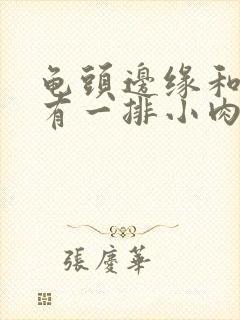 龟頭邊缘和
有一排小肉
張慶華